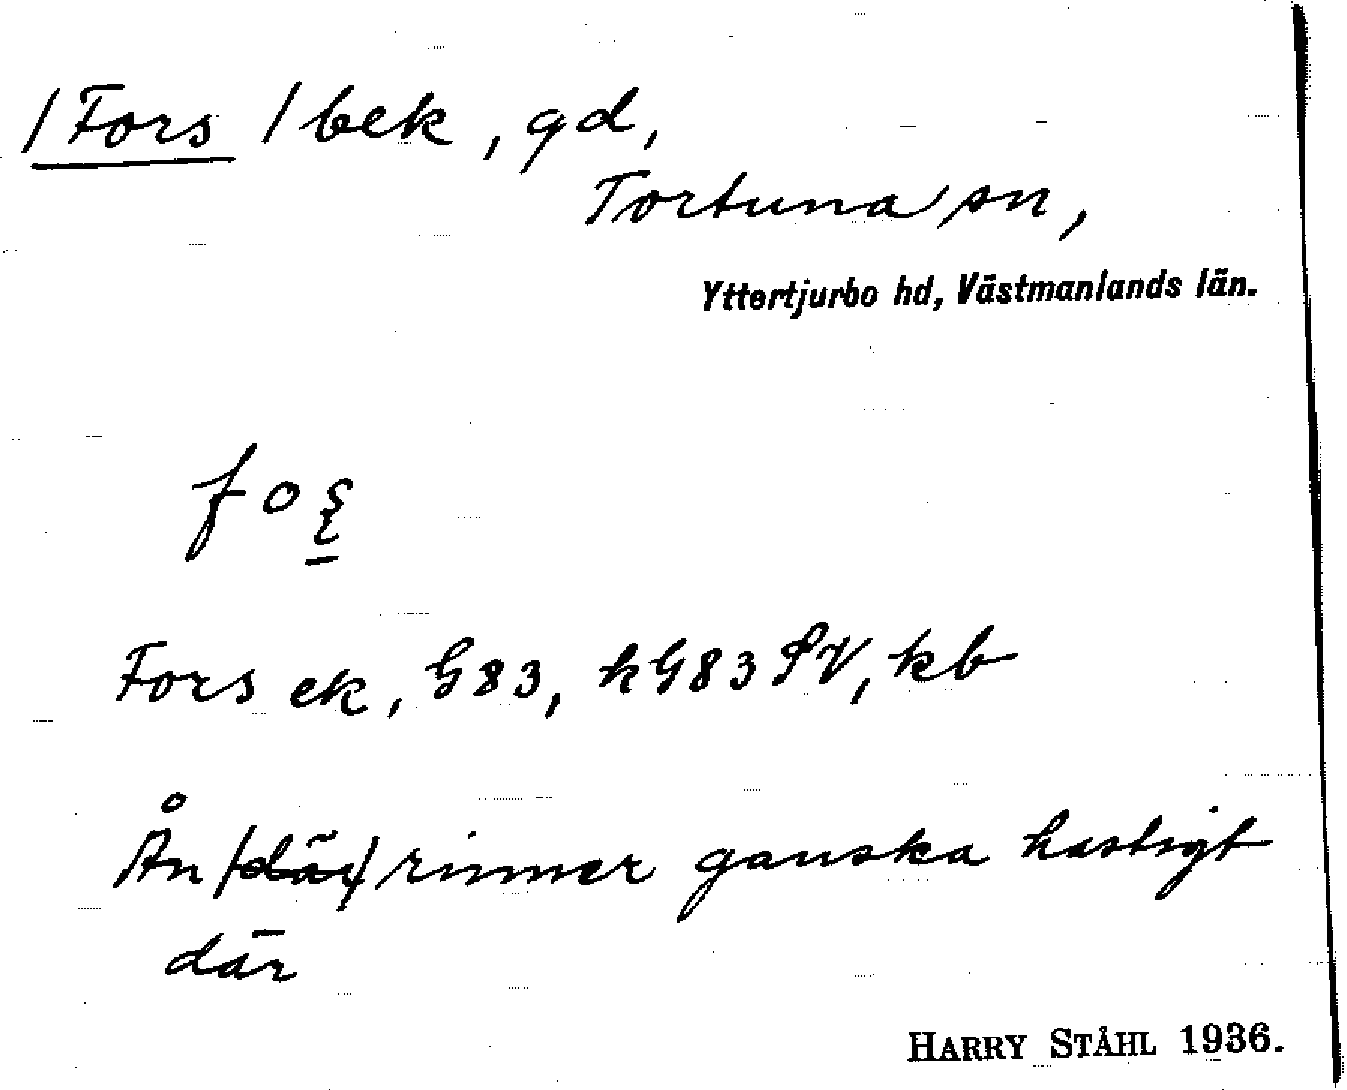 /Fors /bek, gd,
Tortuna sn,
Yttertjurbo hd, Västmanlands län.
foș
Fors ek, G83, kG83 SV, kb
Ån /där/ rinner ganska hastigt
där
HARRY STÅHL 1936.